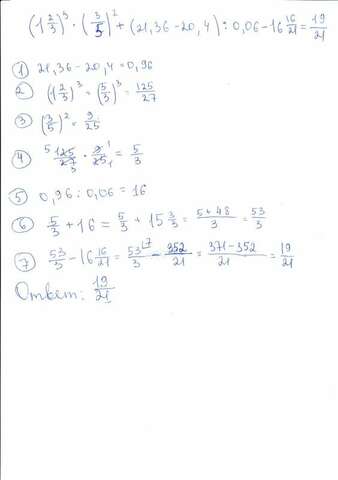 (1 2/3)³ · (3/5)² + (21,36 - 20,4) : 0,06 - 16 16/21 = 19/21
① 21,36 - 20,4 = 0,96
② (1 2/3)³ = (5/3)³ = 125/27
③ (3/5)² = 9/25
④ ⁵125/27₃ · 9¹/25₁ = 5/3
⑤ 0,96 : 0,06 = 16
⑥ 5/3 + 16 = 5/3 + 15 3/3 = 5+48/3 = 53/3
⑦ 53/3 - 16 16/21 = 53⁽⁷/3 - 352/21 = 371-352/21 = 19/21
Ответ: 19/21